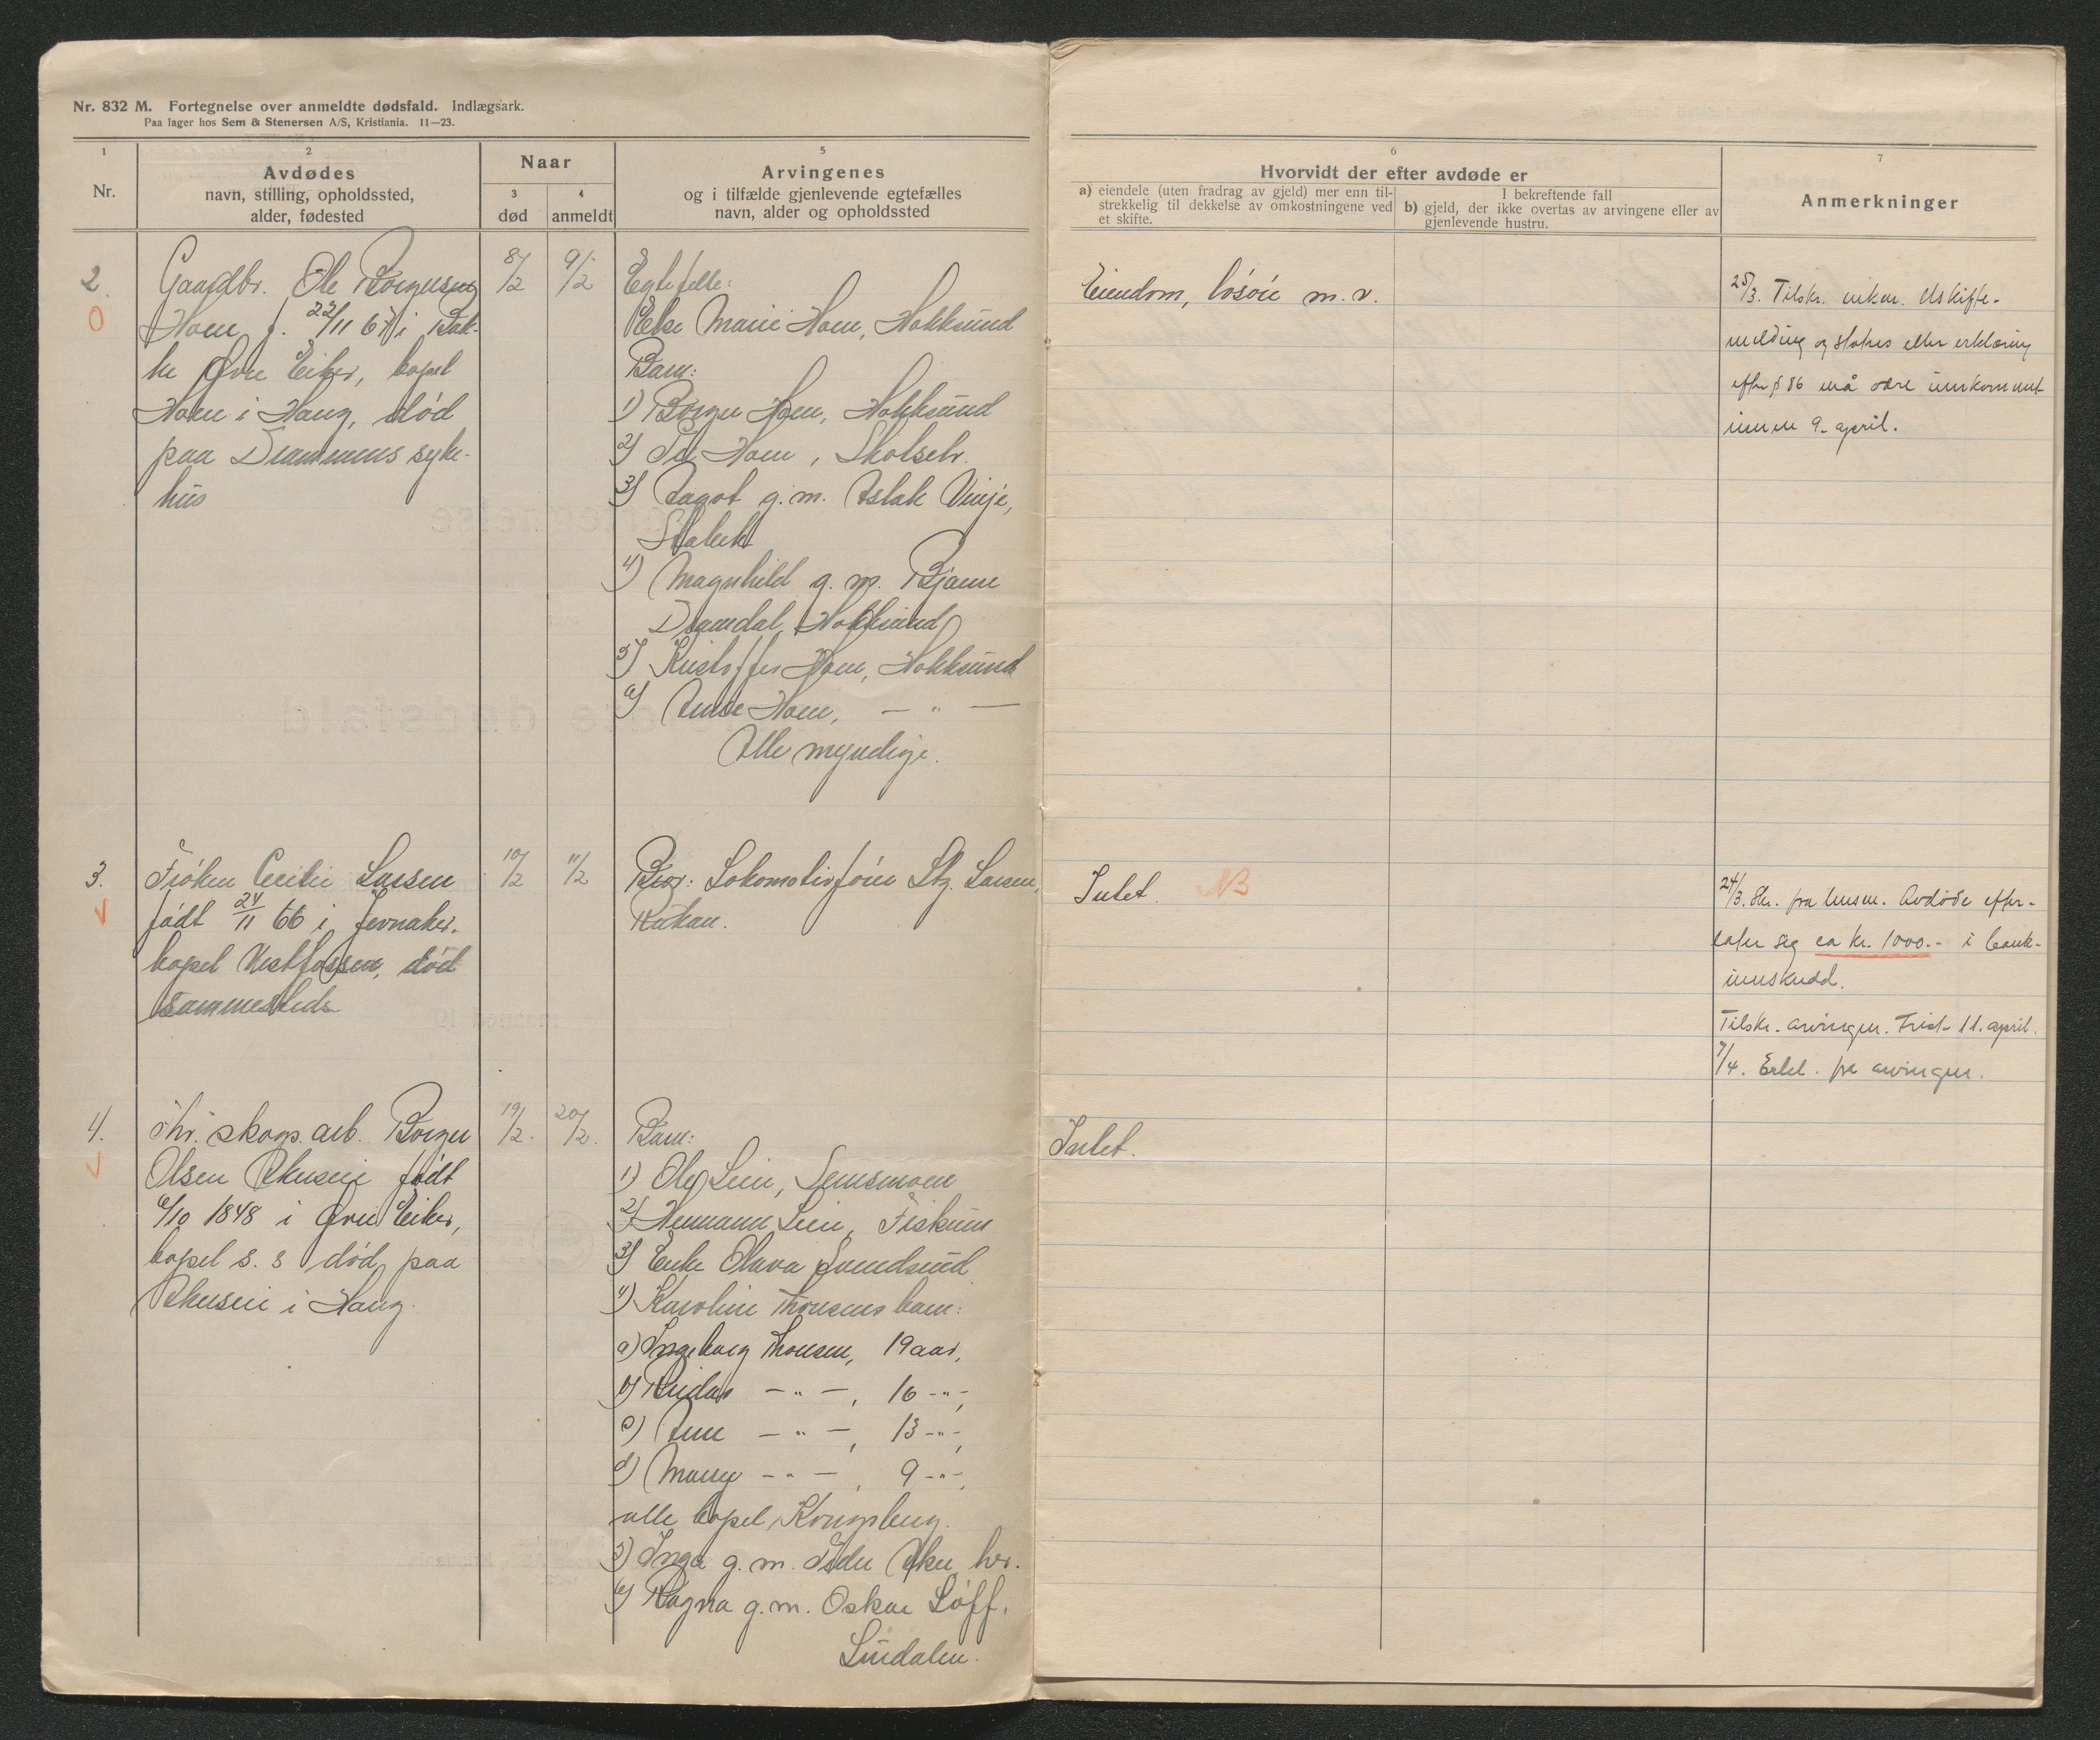 Nr. 832 M. Fortegnelse over anmeldte dødsfald. Indlægsark.
Paa lager hos Sem & Stenersen A/S, Kristiania. 11—23.
1
Nr.
2
Avdødes
navn, stilling, opholdssted,
alder, fødested
Naar
3
død
4
anmeldt
5
Arvingenes
og i tilfælde gjenlevende egtefælles
navn, alder og opholdssted
6
Hvorvidt der efter avdøde er
a) eiendele (uten fradrag av gjeld) mer enn til-
strekkelig til dekkelse av omkostningene ved
et skifte.
I bekreftende fall
b) gjeld, der ikke overtas av arvingene eller av
gjenlevende hustru.
7
Anmerkninger
2.
Gaardbr. Ole Borgersen
Hoen f. 22/11 67 i Bak-
ke Øvre Eiker, bopel
Hoen i Haug, død
paa Drammens syke-
hus
8/2
9/2
Egtefelle:
Else Marie Hoen, Hokksund
Barn:
1) Borger Hoen, Hokksund
2) Hoen, Skotselv.
3) Aagot g.m. Aslak Vinje,
4) Magnhild g.m. Bjarne
Hokksund
5) Kristoffer Hoen, Hokksund
6) Hoen, — " —
Alle myndige.
Eiendom, løsøre m.v.
25/3. Tilskr. enken. Uskifte-
melding og status eller erklæring
efter § 86 må være innkommet
innen 9. april.
3.
Frøken Cecilie Larsen
født 24/11 66 i Jevnaker.
bopel Vestfossen, død
sammesteds
10/2
11/2
Bror: Lokomotivfører Larsen,
Rukan.
Intet. NB
24/3. Skr. fra lensm. Avdøde efter-
later sig ca kr. 1000.- i bank-
innskudd.
Tilskr. arvingen. Frist 11. april.
7/4. Erkl. fra arvingen.
4.
fhv. skogs.arb. Borger
Olsen født
6/10 1848 i Øvre Eiker,
bopel s. s død paa
i Haug.
19/2.
20/2.
Barn:
1) Ole Lien, Semsmoen
2) Hermann Lien, Fiskum
3) Enke Olava
4) Karoline Thonsens barn:
a) Ingeborg Thonsen, 19 aar,
b) Reidar — " —, 16 -"-,
c) — " —, 13 -"-,
d) — " —, 9 -"-,
alle bopel Kongsberg.
5) Inga g.m. her.
6) Ragna g.m. Oskar Løff,
Lindalen.
Intet.